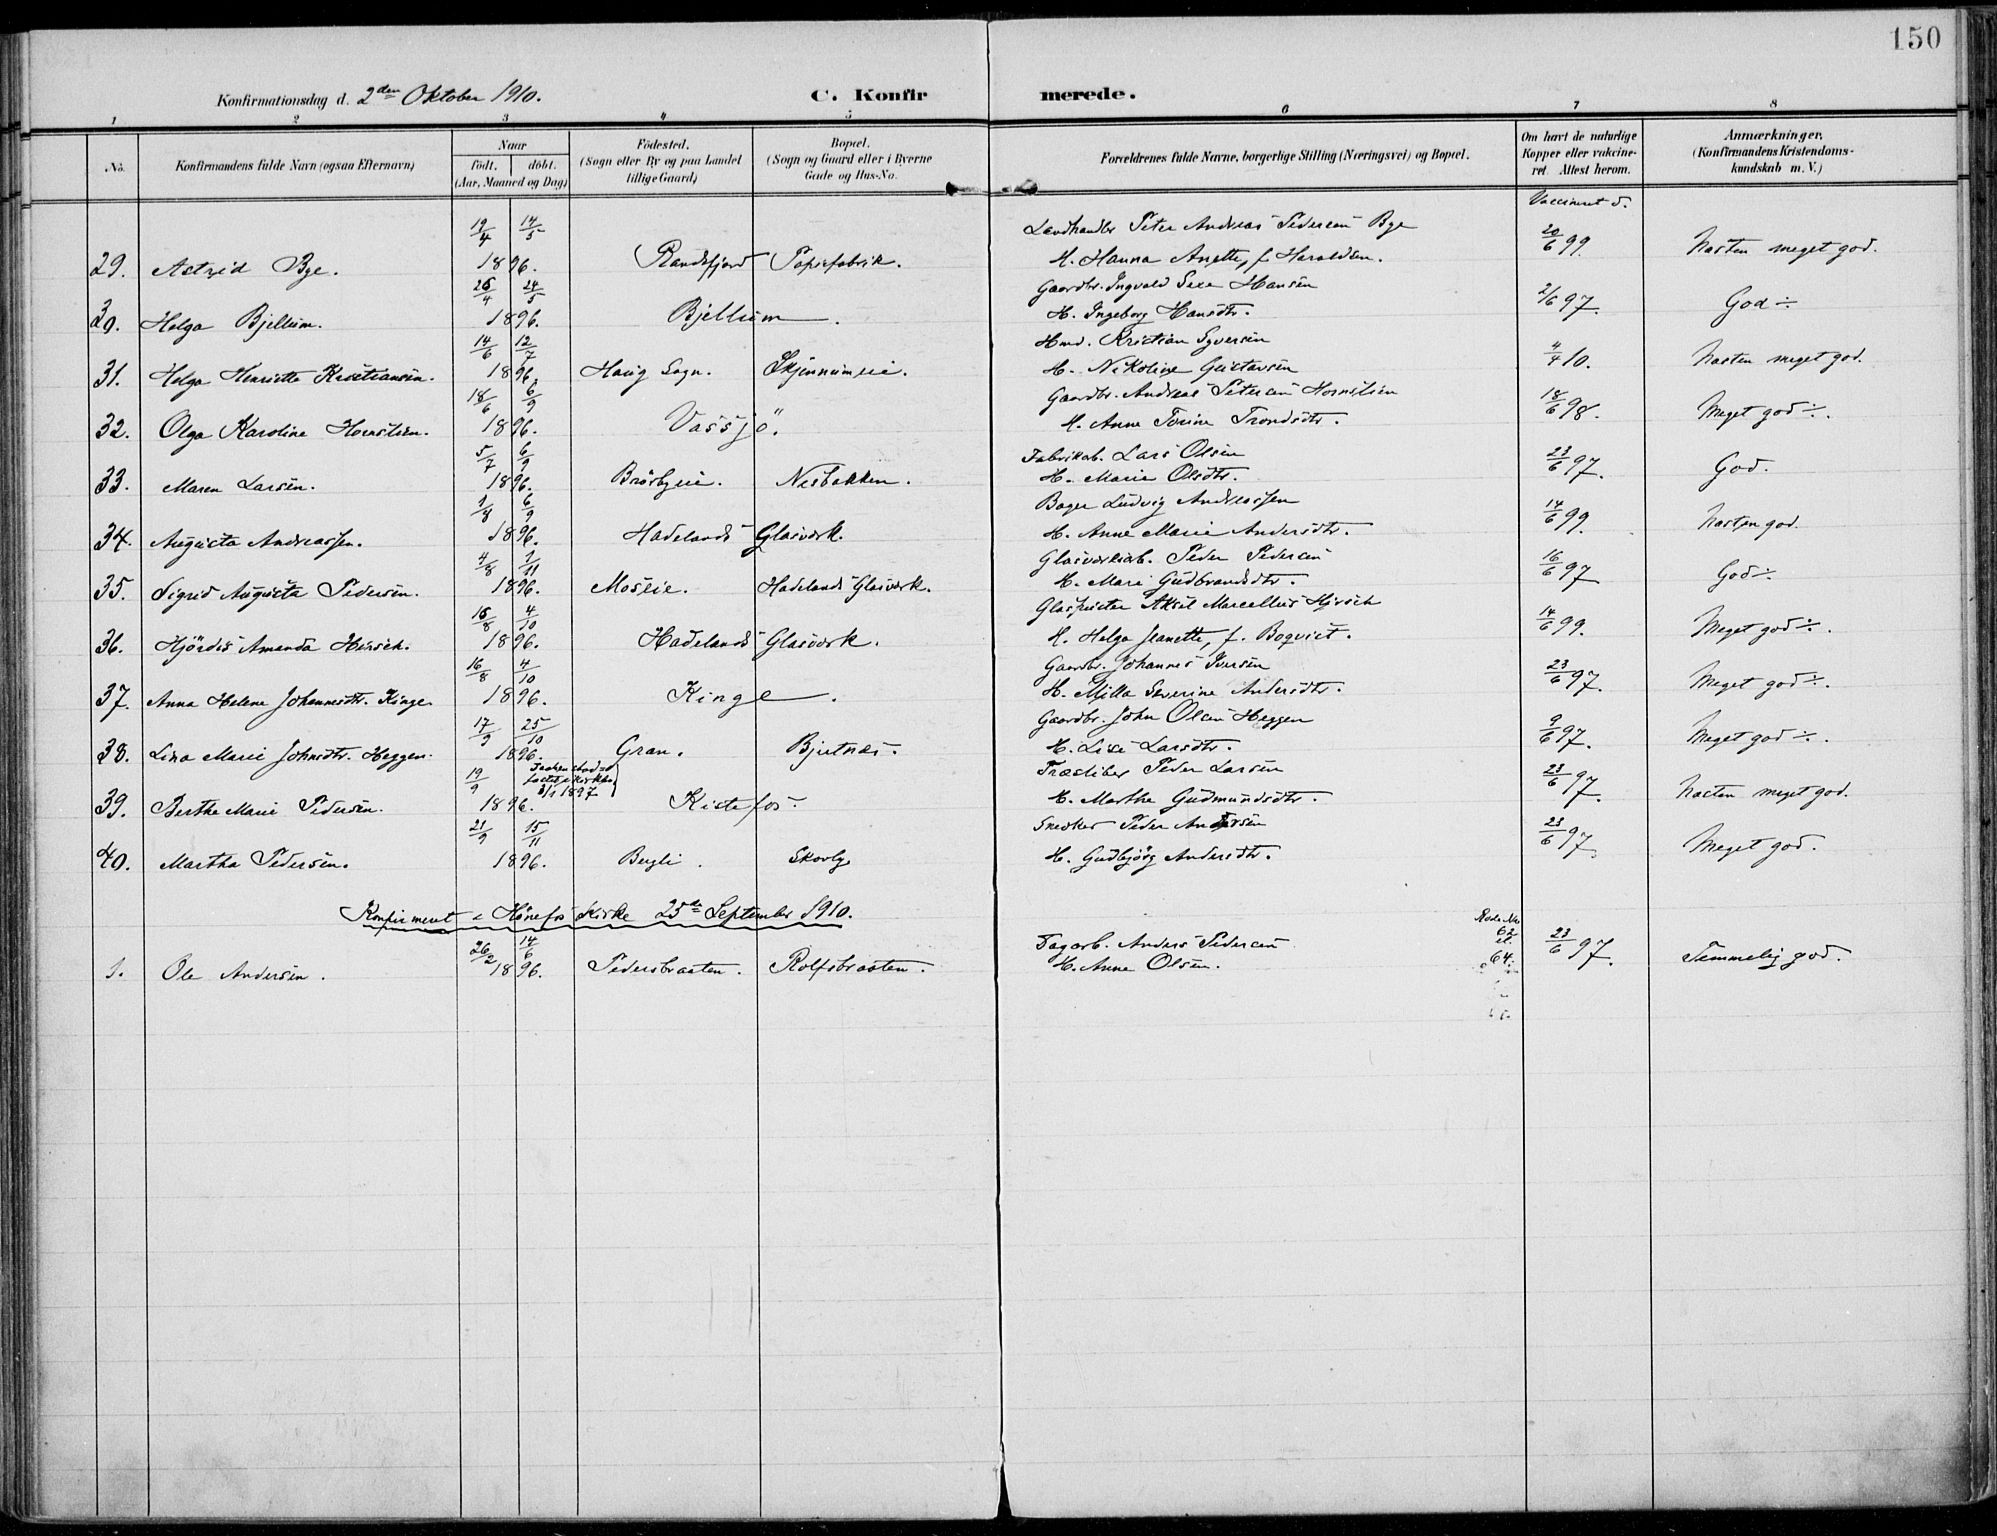 150
Konfirmationsdag d. 2den Oktober 1910. C. Konfirmerede.
1 2 3 4 5 6 7 8
No. Konfirmandens fulde Navn (ogsaa Efternavn) Naar født. døbt. (Aar, Maaned og Dag) Fødested. (Sogn eller By og paa Landet tillige Gaard) Bopæl. (Sogn og Gaard eller i Byerne Gade og Hus-No. Forældrenes fulde Navne, borgerlige Stilling (Næringsvei) og Bopæl. Om havt de naturlige Kopper eller vakcineret. Attest herom. Anmærkninger. (Konfirmandens Kristendomskundskab m. V.)
Vaccineret d.
19/4 14/5 Landhandler Peter Andreas Pedersen Bye
29. Astrid Bye. 1896. Randsfjord Papirfabrik. H. Hanna Anette, f. Haraldsen. 20/6 99. Næsten meget god.
26/4 24/5 Gaardbr. Ingvald Hansen
30. Helga Bjellum. 1896. Bjellum. H. Ingeborg Hansdtr. 2/6 97. God ÷
14/6 12/7 Hmd. Kristian Syversen
31. Helga Henriette Kristiansen. 1896. Haug Sogn. Skjennumeie. H. Nikoline Gustavsen 4/4 10. Næsten meget god.
18/6 6/9 Gaardbr. Andreas Petersen Hornslien
32. Olga Karoline Hornslien. 1896. Vassjø. H. Anne Torine Trondsdtr. 18/6 98. Meget god ÷.
5/7 6/9 Fabrikarb. Lars Olsen
33. Maren Larsen. 1896. Brørbyeie. Nesbakken. H. Marie Olsdtr. 23/6 97. God.
1/8 6/9 Bager Ludvig Andreassen
34. Augusta Andreassen. 1896. Hadelands Glasværk. H. Anne Marie Andersdtr. 14/6 99. Næsten god.
4/8 1/11 Glasværksarb. Peder Pedersen
35. Sigrid Augusta Pedersen. 1896. Moseie. Hadelands Glasværk. H. Mari Gudbrandsdtr. 16/6 97 God ÷.
16/8 4/10 Glaspuster Aksel Marcellius Hirsch
36. Hjørdis Amanda Hirsch. 1896. Hadelands Glasværk. H. Helga Jeanette, f. Boqvist. 14/6 99. Meget god ÷.
16/8 4/10 Gaardbr. Johannes Iversen
37. Anna Helene Johannesdtr. Kinge. 1896. Kinge. H. Milla Severine Andersdtr. 23/6 97. Meget god ÷.
17/9 25/10 Gaardbr. John Olsen Heggen
38. Lina Marie Johnsdtr. Heggen. 1896. Gran. Bjertnæs. H. Lise Larsdtr. 9/6 97. Meget god ÷.
19/9 3/1 1897 Træsliber Peder Larsen
39. Berthe Marie Pedersen. 1896. Kistefos. H. Marthe Gudmundsdtr. 23/6 97. Næsten meget god.
21/9 15/11 Snedker Peder Andersen
40. Martha Pedersen. 1896. Bergli. Skovly H. Gudbjørg Andersdtr. 23/6 97. Meget god.
Konfirmeret i Hønefos Kirke 25de September 1910.
26/2 14/6 Fagarb. Anders Pedersen 62 64.
1. Ole Andersen. 1896. Pedersbraaten. Rolfsbraaten. H. Anne Olsen. 23/6 97. Temmelig god.